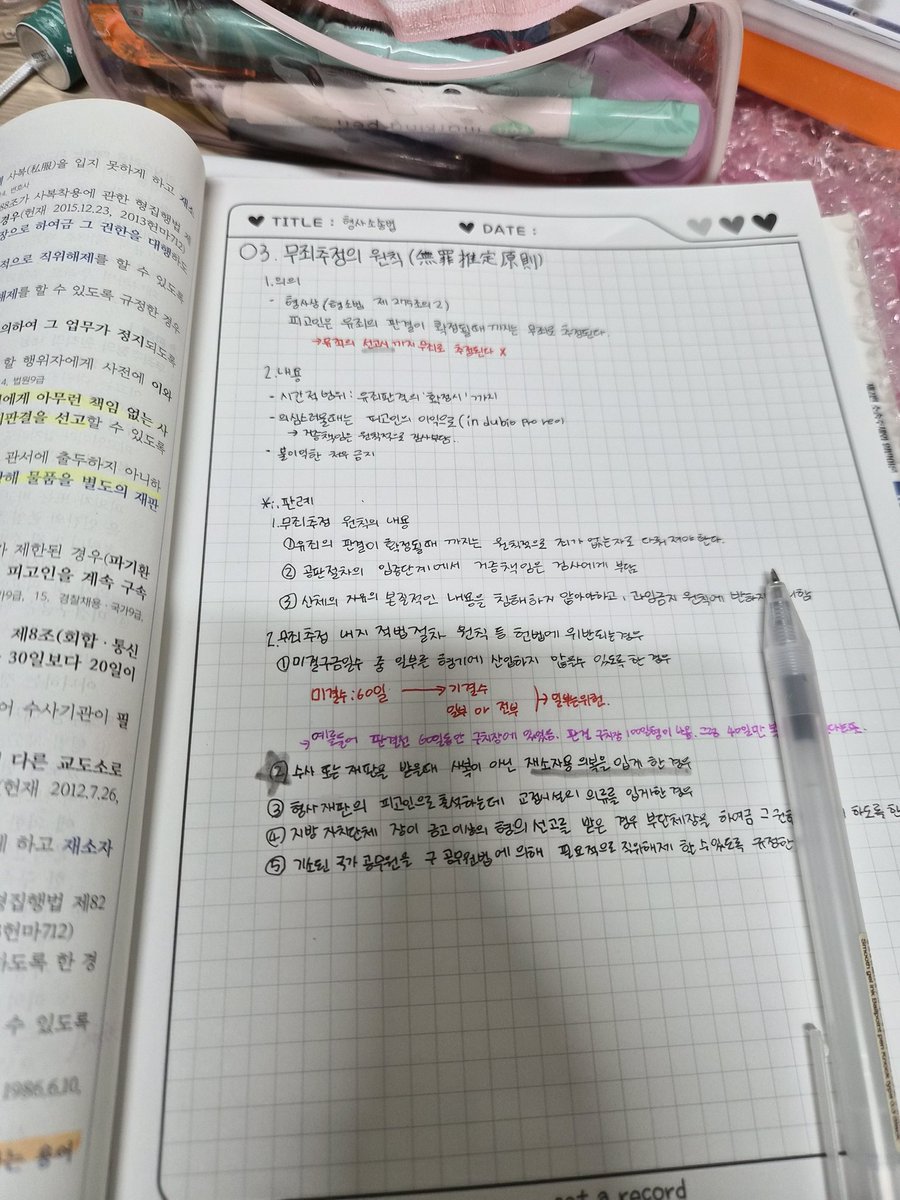 사복(私服)을 입지 못하게 하고 재소
88조가 사복착용에 관한 형집행법 제
경우(헌재 2015.12.23, 2013헌마712)
장으로 하여금 그 권한을 대행하도
적으로 직위해제를 할 수 있도록
해제를 할 수 있도록 규정한 경우
의하여 그 업무가 정지되도록
할 행위자에게 사전에 이와
4. 법원9급
에게 아무런 책임 없는 사
판결을 선고할 수 있도록
관서에 출두하지 아니하
해 물품을 별도의 재판
제한된 경우(파기환
피고인을 계속 구속
9급, 15. 경찰채용·국가9급
제8조(회합·통신
30일보다 20일이
어 수사기관이 필
다른 교도소로
헌재 2012.7.26,
게 하고 재소자
형집행법 제82
헌마712)
하도록 한 경
수 있도록
1986.6.10,
는 용어
TITLE : 형사소송법
DATE :
03. 무죄추정의 원칙(無罪推定原則)
1. 의의
- 형사상(형소법 제275조의2)
피고인은 유죄의 판결이 확정될때 까지는 무죄로 추정된다.
→유죄의 선고시 까지 무죄로 추정된다 X
2. 내용
- 시간적범위 : 유죄판결의 '확정시' 까지
- 의심스러울때는 피고인의 이익으로(in dubio pro reo)
→ 거증책임은 원칙적으로 검사부담.
- 불이익한 처우 금지
*:. 판례
1. 무죄추정 원칙의 내용
① 유죄의 판결이 확정될때 까지는 원칙적으로 죄가 없는자로 다뤄져야 한다.
② 공판절차의 입증단계에서 거증책임은 검사에게 부담
③ 신체의 자유의 본질적인 내용을 침해하지 않아야하고, 과잉금지 원칙에 반하지
2. 무죄추정 내지 적법절차 원칙 등 헌법에 위반되는경우
① 미결구금일수 중 일부를 형기에 산입하지 않을수 있도록 한 경우
미결수:60일 → 기결수
일부 or 전부 → 일부는위헌.
→ 예를들어 판결전 60일동안 구치장에 있었음. 판결 구치장 100일형이 나옴. 그럼 40일만
② 수사 또는 재판을 받을때 사복이 아닌 재소자용 의복을 입게 한 경우
③ 형사재판의 피고인으로 출석하는데 교정시설의 의류를 입게한 경우
④ 지방 자치단체 장이 금고이상의 형의 선고를 받은 경우 부단체장을 하여금 그 권한 하도록 한
⑤ 기소된 국가 공무원을 구 공무원법에 의해 필요적으로 직위해제 할 수 있도록 규정한
not a record